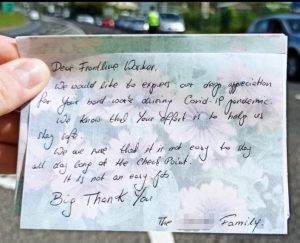 Dear Frontline Worker,
We would like to express our deep appreciation
for your hard work during Covid-19 pandemic.
We know that your effort is to help us
stay safe.
We are sure that it is not easy to stay
all day long at the Check Point.
It is not an easy job.
Big Thank You
The Family.